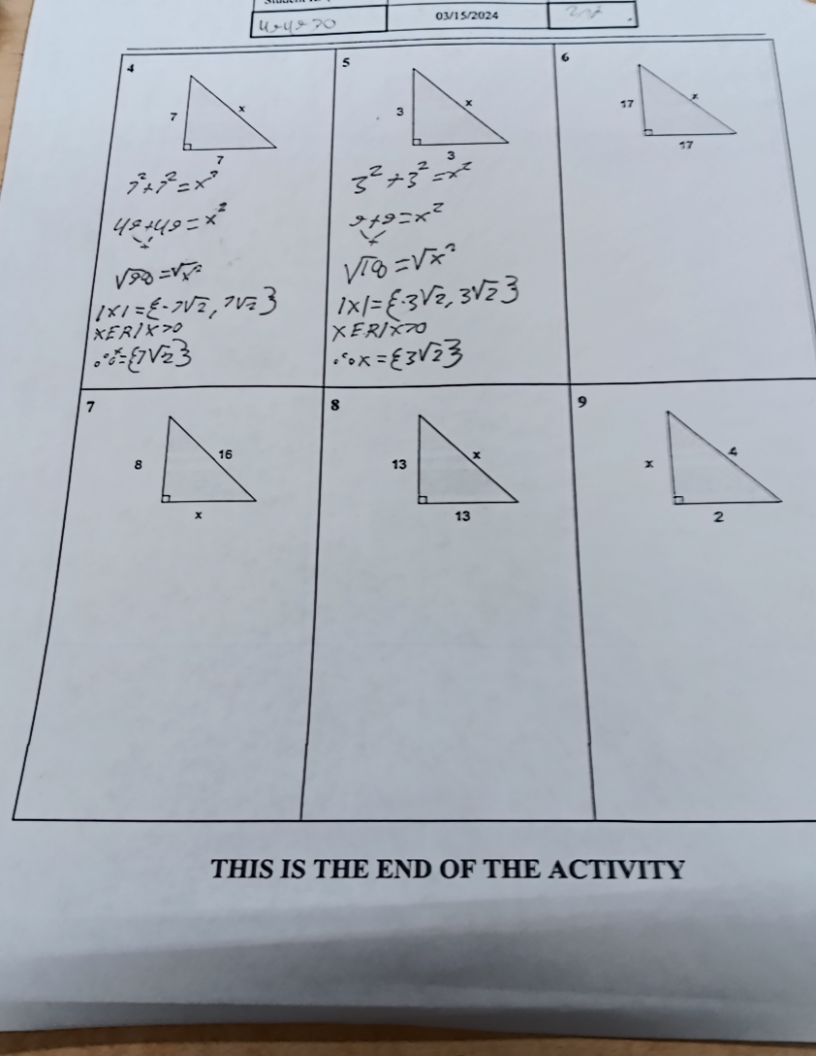 03/15/2024
4
7
x
7
7²+7²=x²
49+49=x²
+
√98=√x²
|x|={-7√2, 7√2}
XER/X>0
∴x={7√2}
5
3
x
3
3²+3²=x²
9+9=x²
+
√18=√x²
|x|={-3√2, 3√2}
XER/X>0
∴x={3√2}
6
17
x
17
7
8
16
x
8
13
x
13
9
x
4
2
THIS IS THE END OF THE ACTIVITY